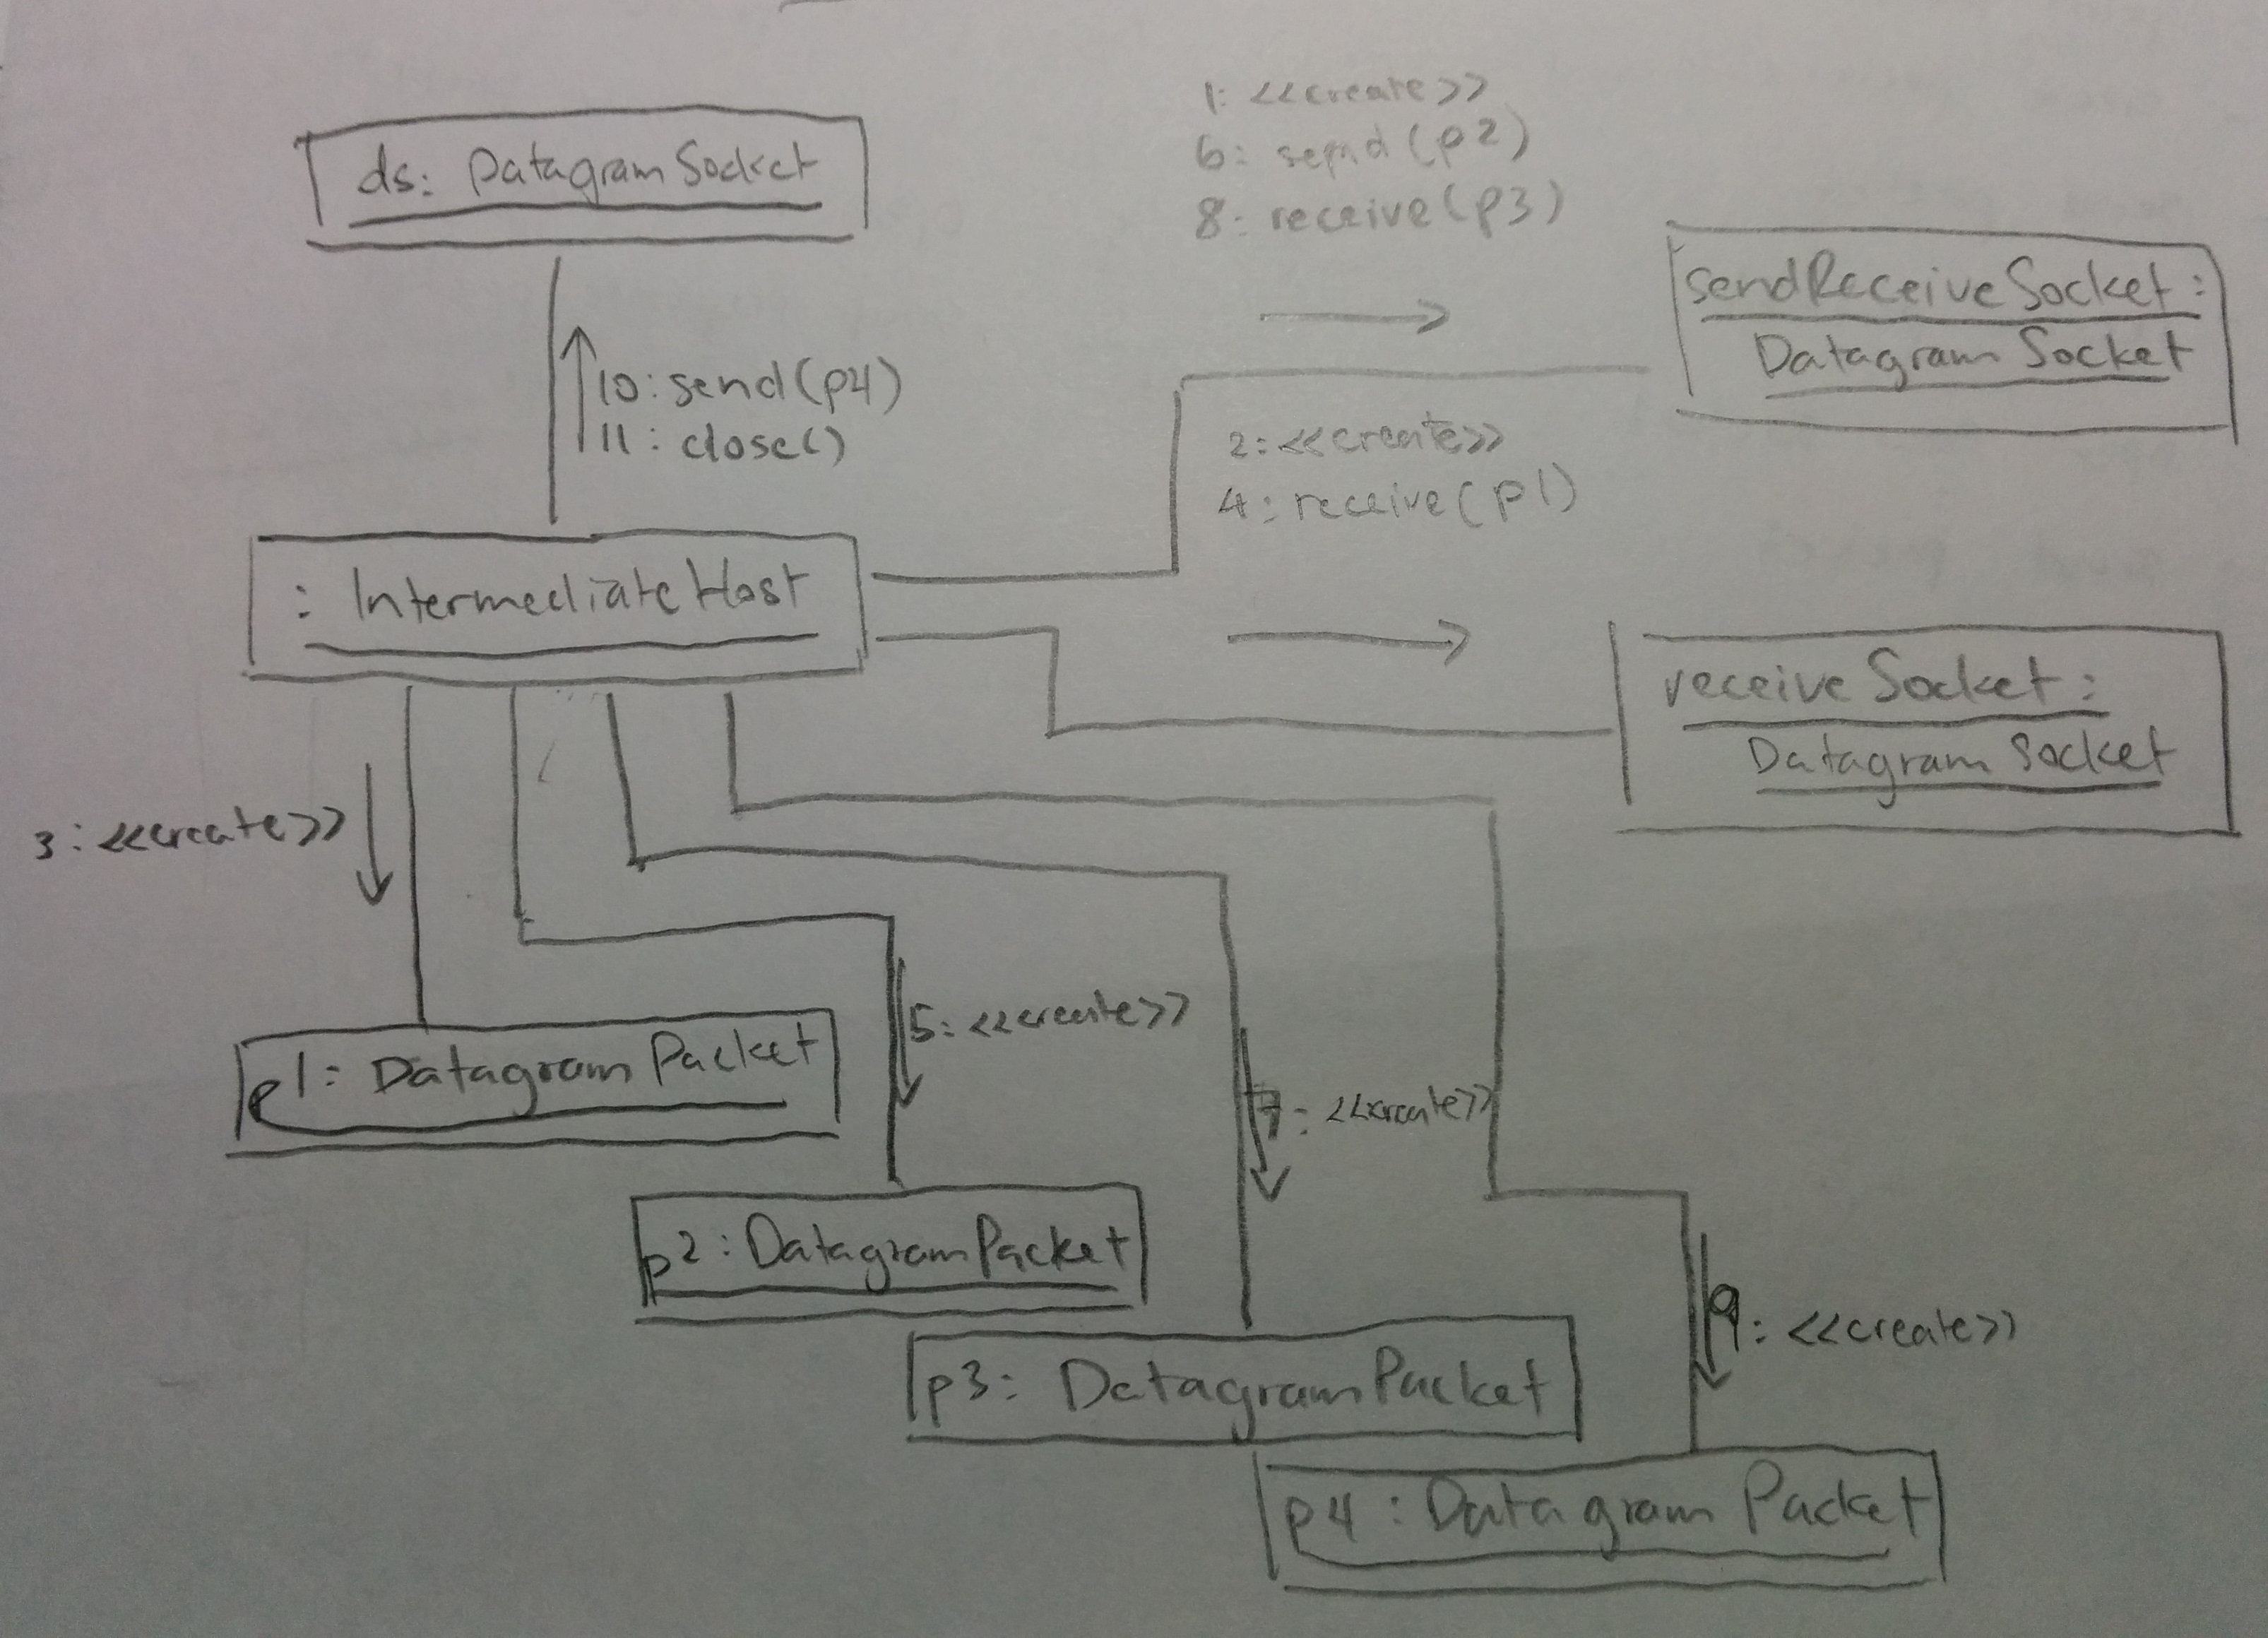 1: <<create>>
6: send(p2)
8: receive(p3)
ds: DatagramSocket
sendReceiveSocket:
Datagram Socket
10: send(p4)
11: close()
2: <<create>>
4: receive(p1)
: IntermediateHost
receive Socket:
Datagram Socket
3: <<create>>
5: <<create>>
p1: Datagram Packet
7: <<create>>
p2: DatagramPacket
9: <<create>>
p3: DatagramPacket
p4: Datagram Packet